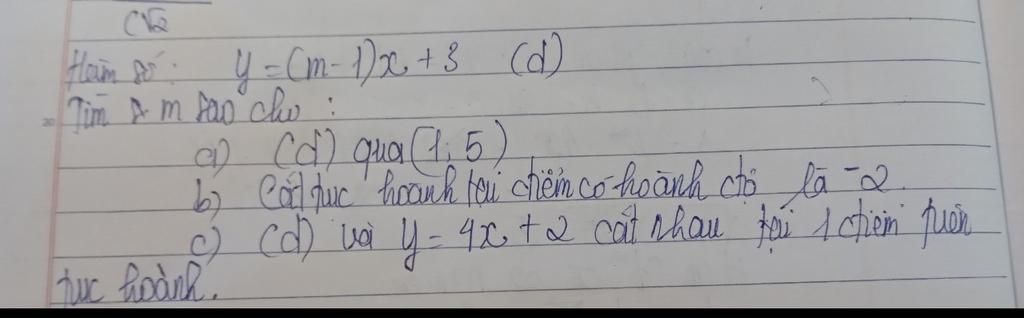 C√2
Hàm số: y = (m-1)x + 3 (d)
Tìm m sao cho:
a) (d) qua (1; 5)
b) Cắt trục hoành tại điểm có hoành độ là -2.
c) (d) và y = 4x + 2 cắt nhau tại 1 điểm trên
trục hoành.